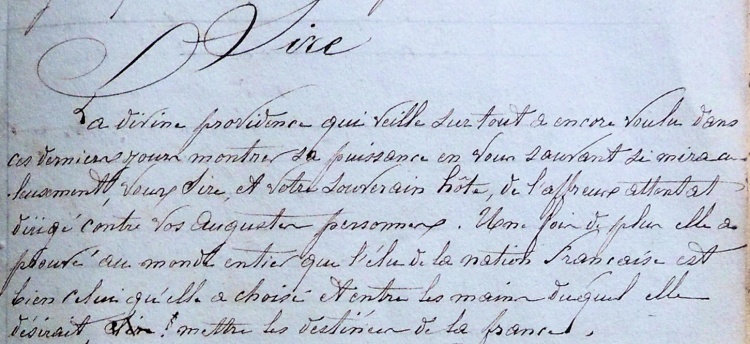 Sire
La divine providence qui veille sur tout a encore voulu dans
ces derniers jours montrer sa puissance en vous sauvant si miracu
leusement, vous, Sire, et votre souverain hôte, de l'affreux attentat
dirigé contre vos augustes personnes. Une fois de plus elle a
prouvé au monde entier que l'élu de la nation Française est
bien celui qu'elle a choisi et entre les mains duquel elle
désirait, mettre les destinées de la france.